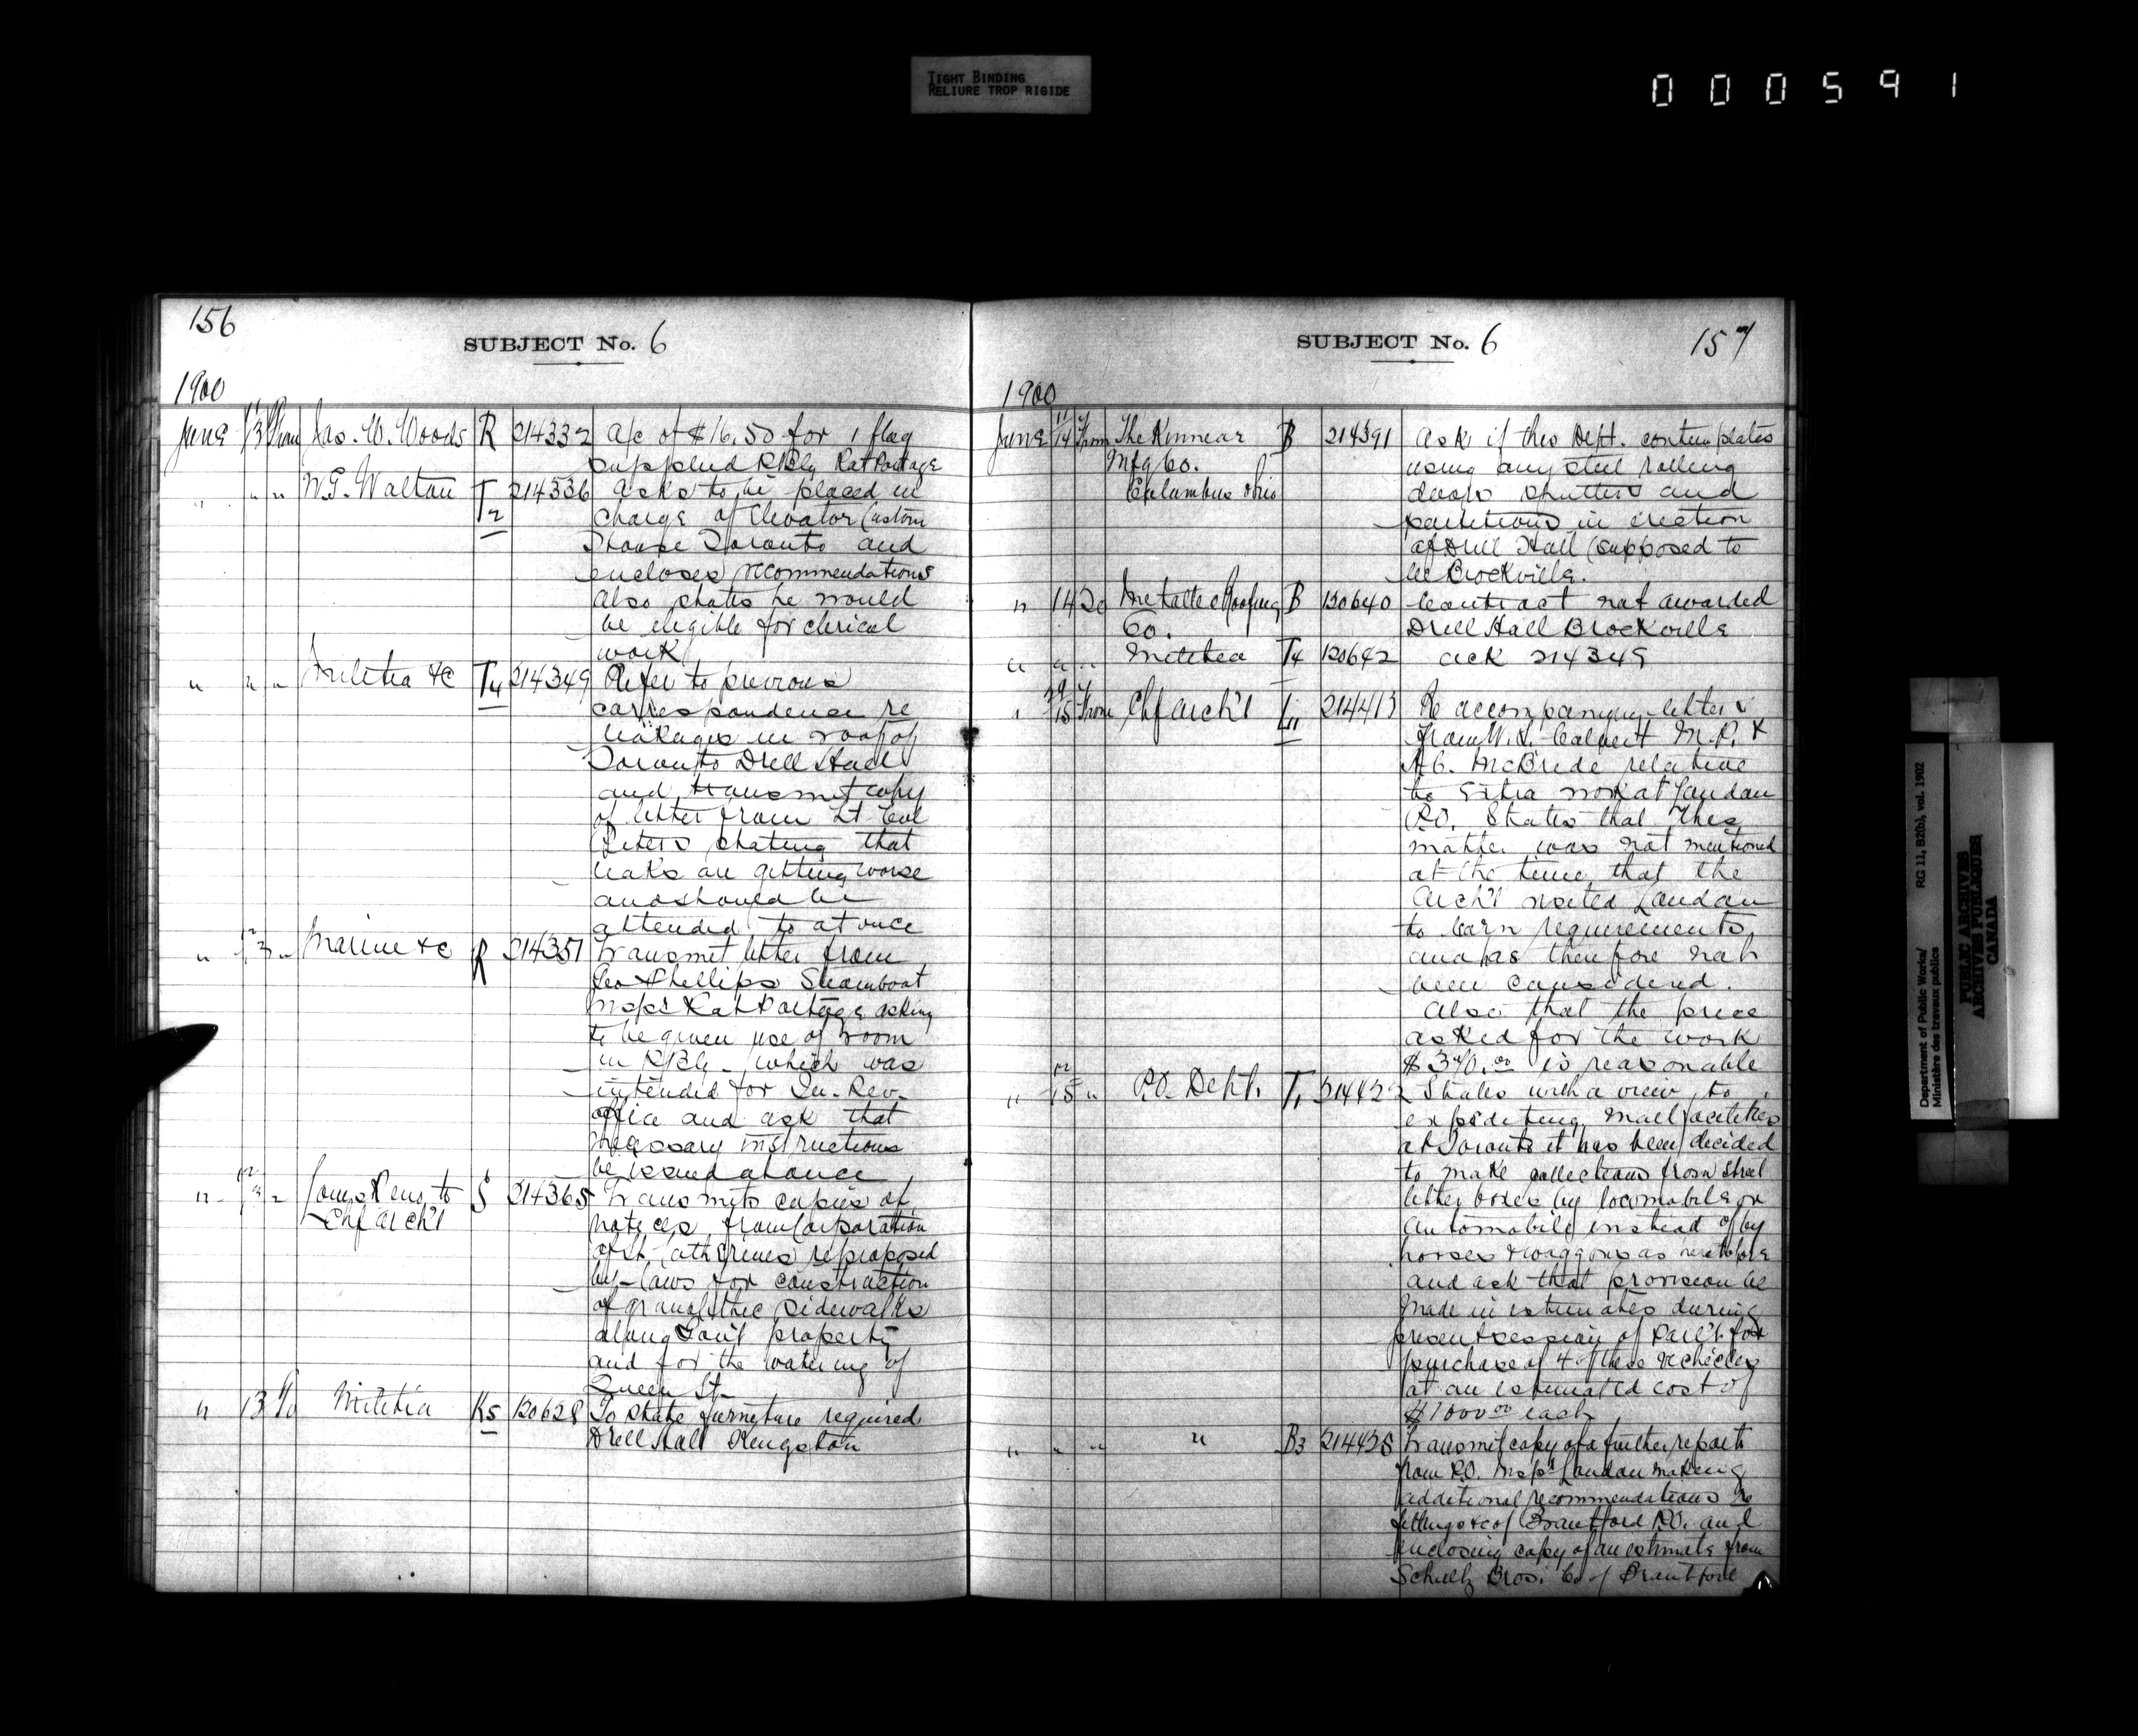 TIGHT BINDING
RELIURE TROP RIGIDE
000591
156
SUBJECT No. 6
1900
June 13 From Jas. W. Woods R 214332 a/c of $16.50 for 1 flag
supplied P.Bly Rat Portage
" " " W.G. Walton T2 214336 asks to be placed in
charge of Elevator Custom
House Toronto and
encloses recommendations
also states he would
be eligible for clerical
work
" " " Militia &c T4 214349 Refer to previous
correspondence re
leakages in roof of
Toronto Drill Hall
and transmit copy
of letter from Lt Col
Peters stating that
leaks are getting worse
and should be
attended to at once
" 13 " Marine &c R 214351 Transmit letter from
Geo Phillips Steamboat
Inspr Rat Portage asking
to be given use of room
in P.Bly which was
intended for In. Rev.
office and ask that
necessary instructions
be issued at once
" " to S 214365 Transmits copies of
Chf Arch't notices from Corporation
of St. Catherines re proposed
by-laws for construction
of granolithic sidewalks
along Gov't property
and for the watering of
Queen St.
" 13 To Militia K5 130628 To state furniture required
Drill Hall Kingston
SUBJECT No. 6 157
1900
June 14 From The Kinnear B 214391 Ask if this Dept. contemplates
Mfg Co. using any steel rolling
Columbus Ohio doors shutters and
partitions in erection
of Drill Hall (supposed to
be Brockville.
" 14 To Metallic Roofing B 130640 Contract not awarded
Co. Drill Hall Brockville
" " " Militia T4 130642 ack 214349
" 15 From Chf Arch't L1 214413 Re accompanying letters
from W.S. Calvert M.P. &
A.C. McBride relative
to Extra work at London
P.O. States that this
matter was not mentioned
at the time that the
Arch't visited London
to learn requirements,
and has therefore not
been considered.
Also that the price
asked for the work
$340.00 is reasonable
" 15 " P.O. Dept. T1 214422 States with a view to
expediting mail facilities
at Toronto it has been decided
to make collections from street
letter boxes by locomobile or
automobile instead of by
horses & waggons as heretofore
and ask that provision be
made in estimates during
present session of Parl't. for
purchase of 4 of these vehicles
at an estimated cost of
$1000.00 each
" " " " B3 214428 Transmit copy of a further report
from P.O. Inspr London making
additional recommendations re
fittings &c of Brantford P.O. and
enclosing copy of an estimate from
Schultz Bros. Co of Brantford
Department of Public Works/ RG 11, B2(b), vol. 1902
Ministère des travaux publics
PUBLIC ARCHIVES
ARCHIVES PUBLIQUES
CANADA